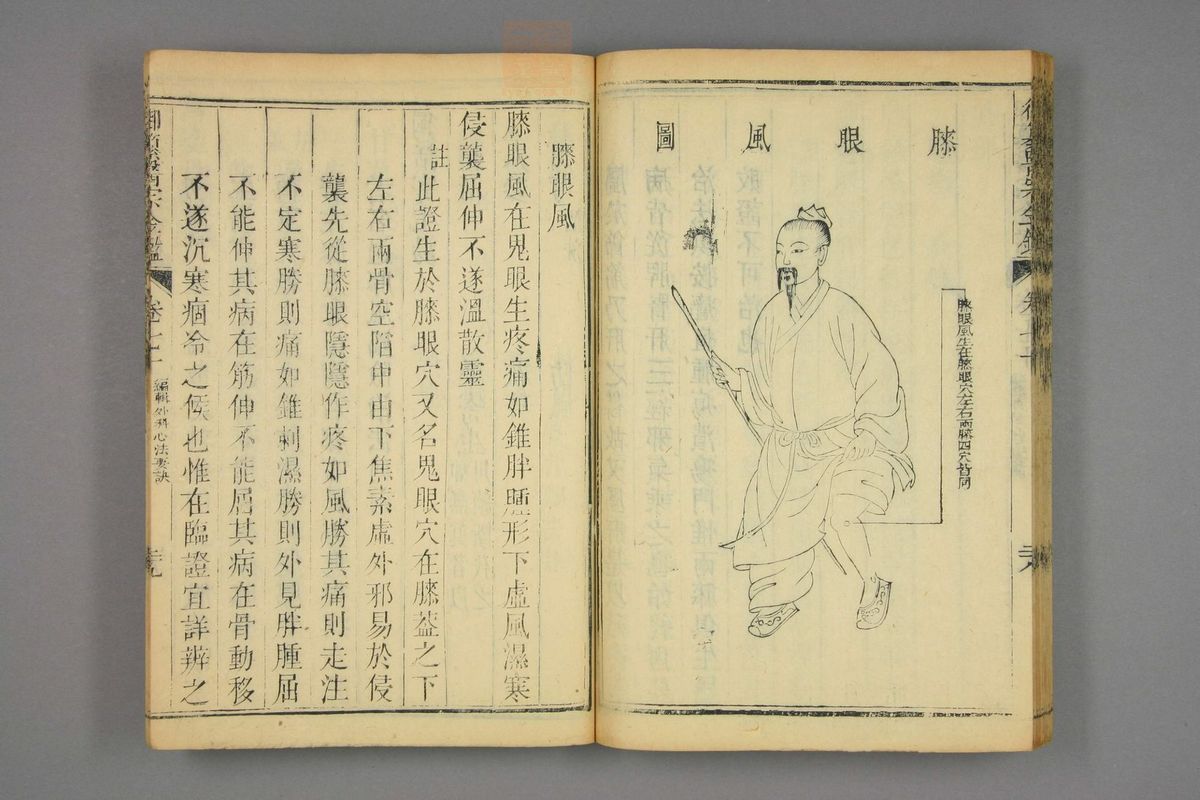 膝眼風圖
膝眼風生在膝眼穴左右兩膝四穴皆同
膝眼風
膝眼風在鬼眼生疼痛如錐胖腫形下虛風濕寒
侵襲屈伸不遂溫散靈
註此證生於膝眼穴又名鬼眼穴在膝蓋之下
左右兩骨空陷中由下焦素虛外邪易於侵
襲先從膝眼隱隱作疼如風勝其痛則走注
不定寒勝則痛如錐刺濕勝則外見胖腫屈
不能伸其病在筋伸不能屈其病在骨動移
不遂沉寒痼冷之候也惟在臨證宜詳辨之
御纂醫宗金鑑
卷七十
編輯外科心法要訣